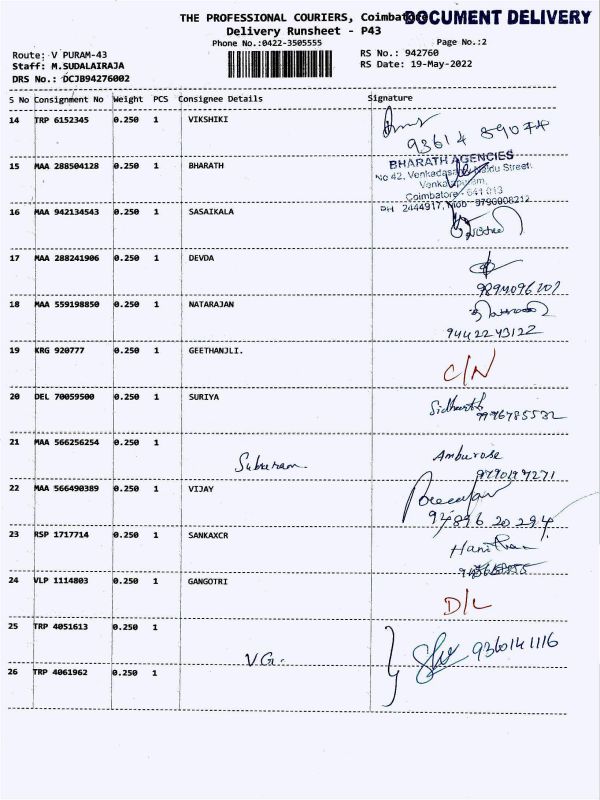 THE PROFESSIONAL COURIERS, Coimbatore
DOCUMENT DELIVERY
Delivery Runsheet - P43
Phone No.:0422-3505555
Page No.:2
Route: V PURAM-43
RS No.: 942760
Staff: M.SUDALAIRAJA
RS Date: 19-May-2022
DRS No.: DCJB94276002
S No Consignment No Weight PCS Consignee Details Signature
14 TRP 6152345 0.250 1 VIKSHIKI
93614 89074
15 MAA 288504128 0.250 1 BHARATH
BHARATH AGENCIES
No 42, Venkadasamy Naidu Street
Venkatapuram,
Coimbatore - 641 013
PH 2444917, Mob 9790908212
16 MAA 942134543 0.250 1 SASAIKALA
17 MAA 288241906 0.250 1 DEVDA
18 MAA 559198850 0.250 1 NATARAJAN
9442243122
19 KRG 920777 0.250 1 GEETHANJLI.
C/N
20 DEL 70059500 0.250 1 SURIYA
Sidharth
9976785532
21 MAA 566256254 0.250 1
Suburam
Amburose
22 MAA 566490389 0.250 1 VIJAY
94896 20294
23 RSP 1717714 0.250 1 SANKAXCR
24 VLP 1114803 0.250 1 GANGOTRI
D/L
25 TRP 4051613 0.250 1
VG.
9360141116
26 TRP 4061962 0.250 1